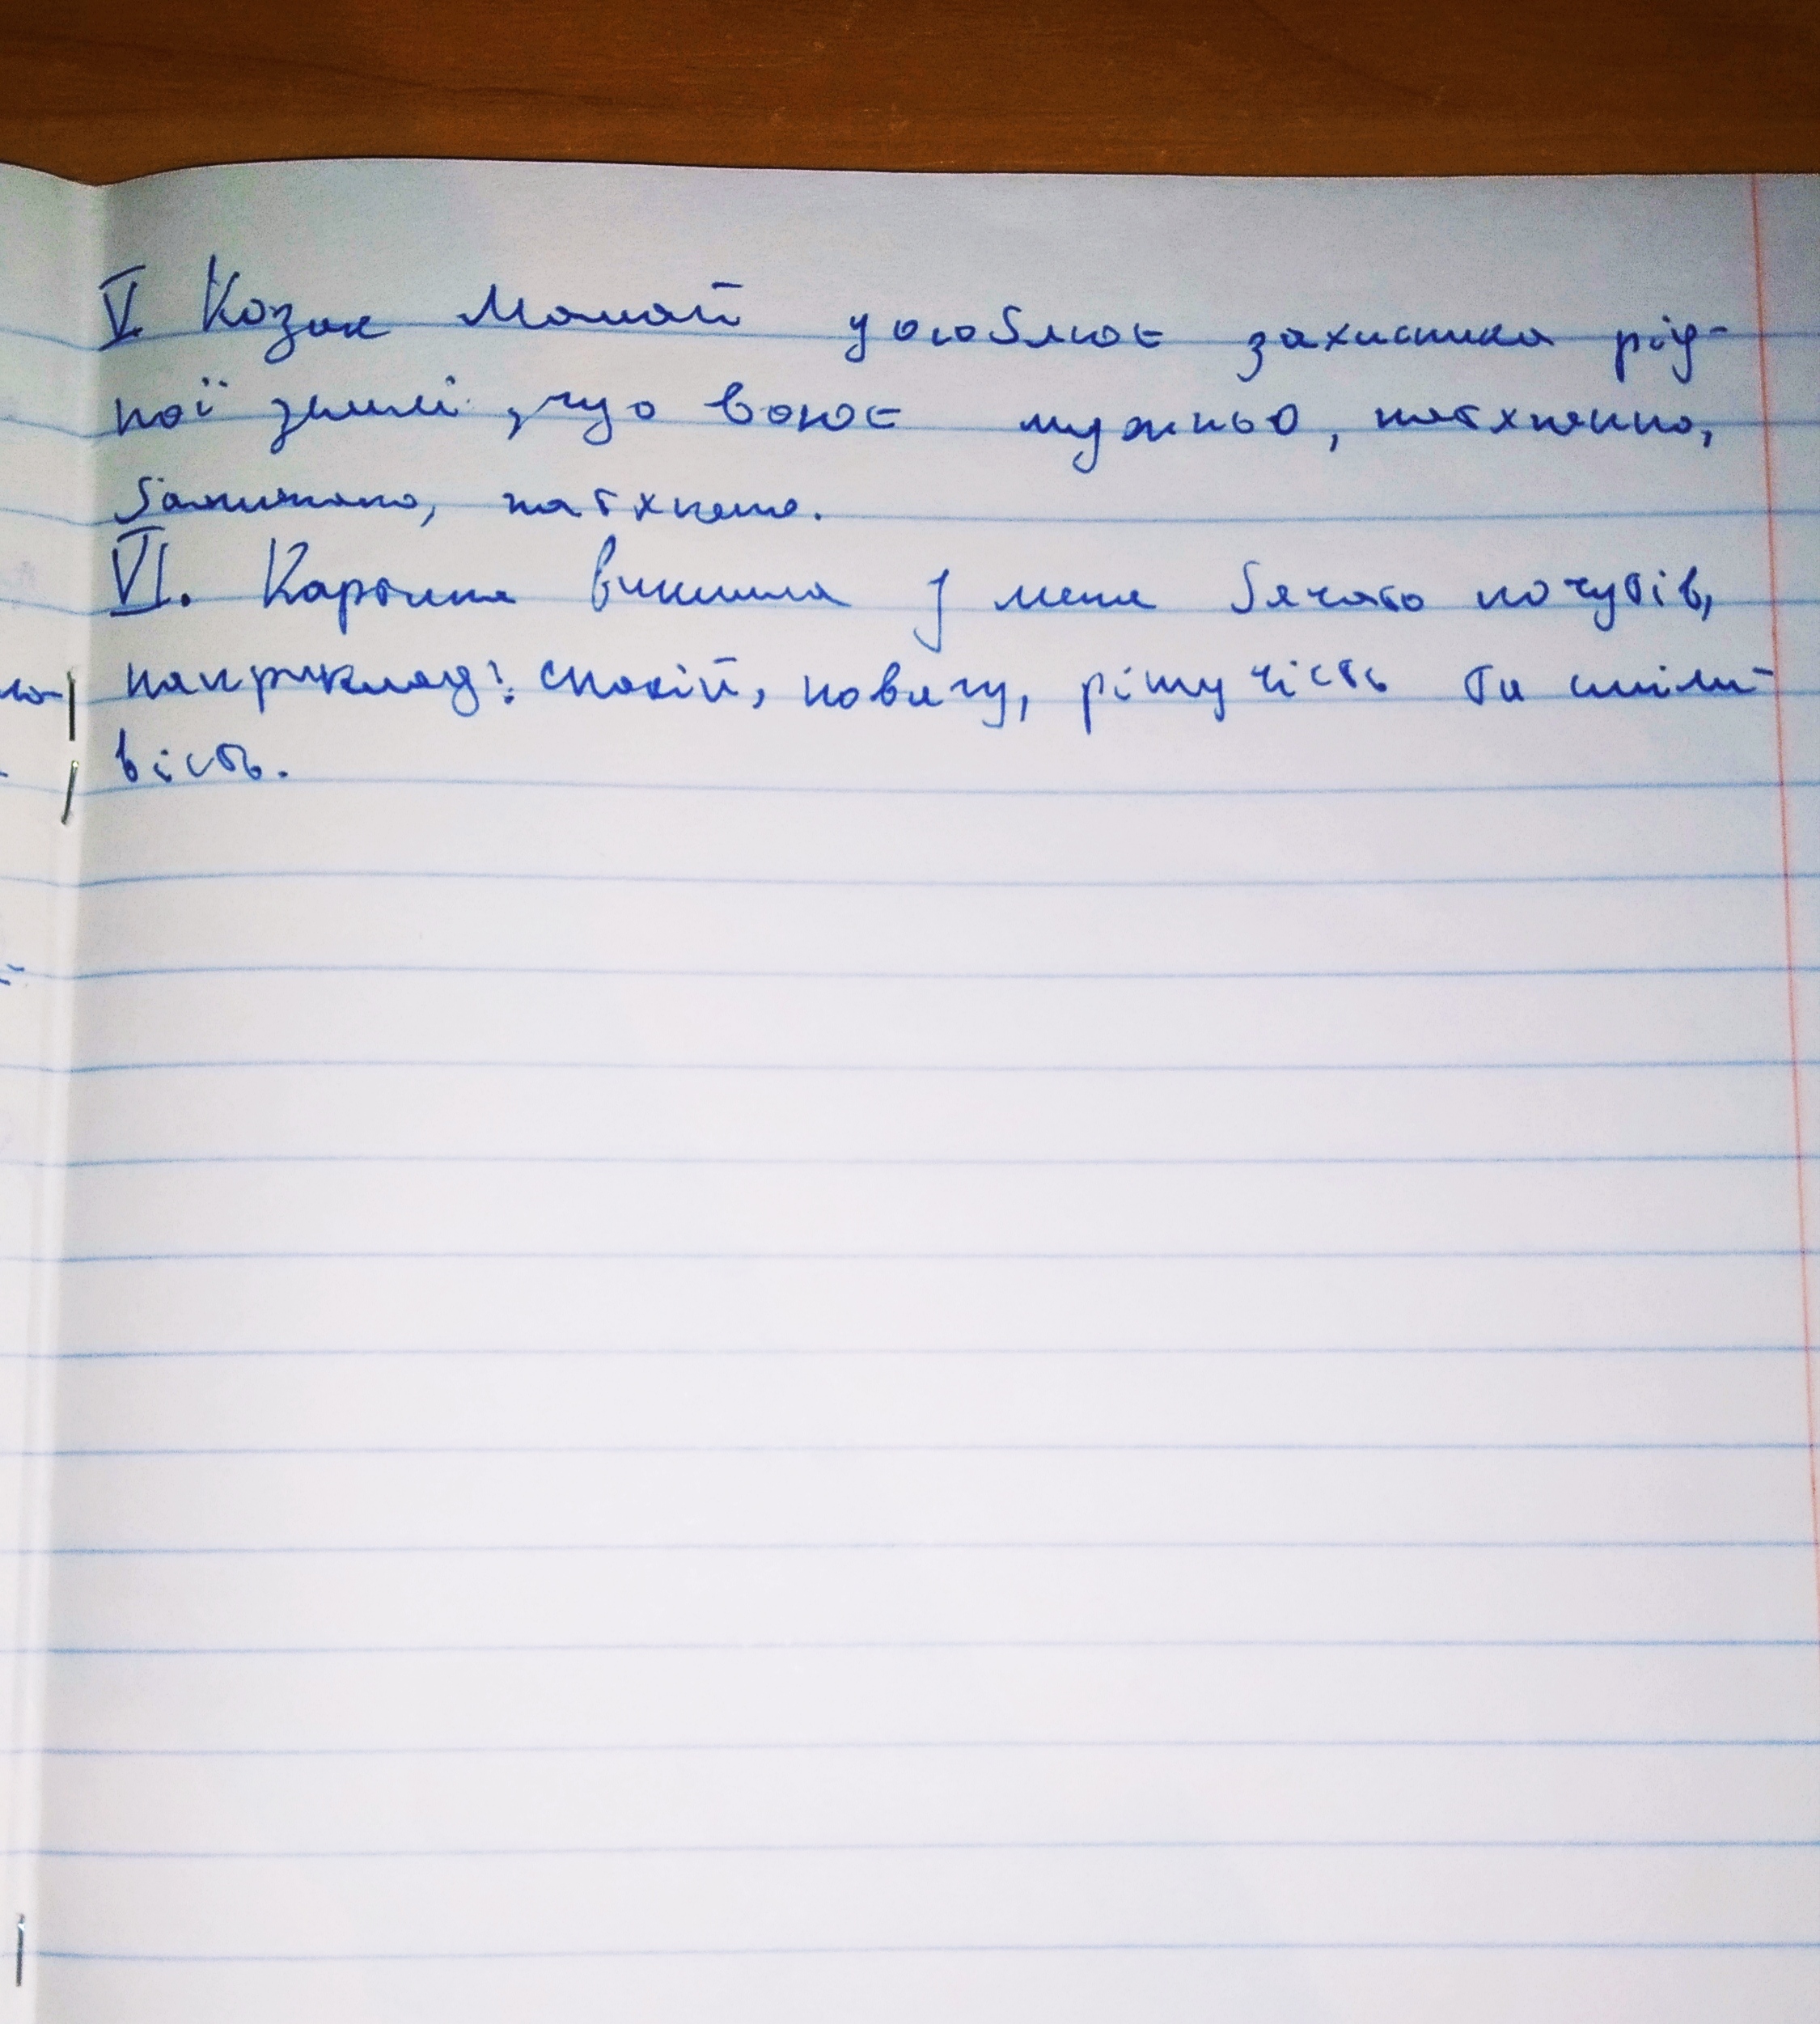 V. Козак Мамай уособлює захисника рід-
ної землі, що воює мужньо, натхненно,
натхнено.
VI. Картина викликала у мене багато почуттів,
наприклад: спокій, повагу, рішучість та сміли-
вість.